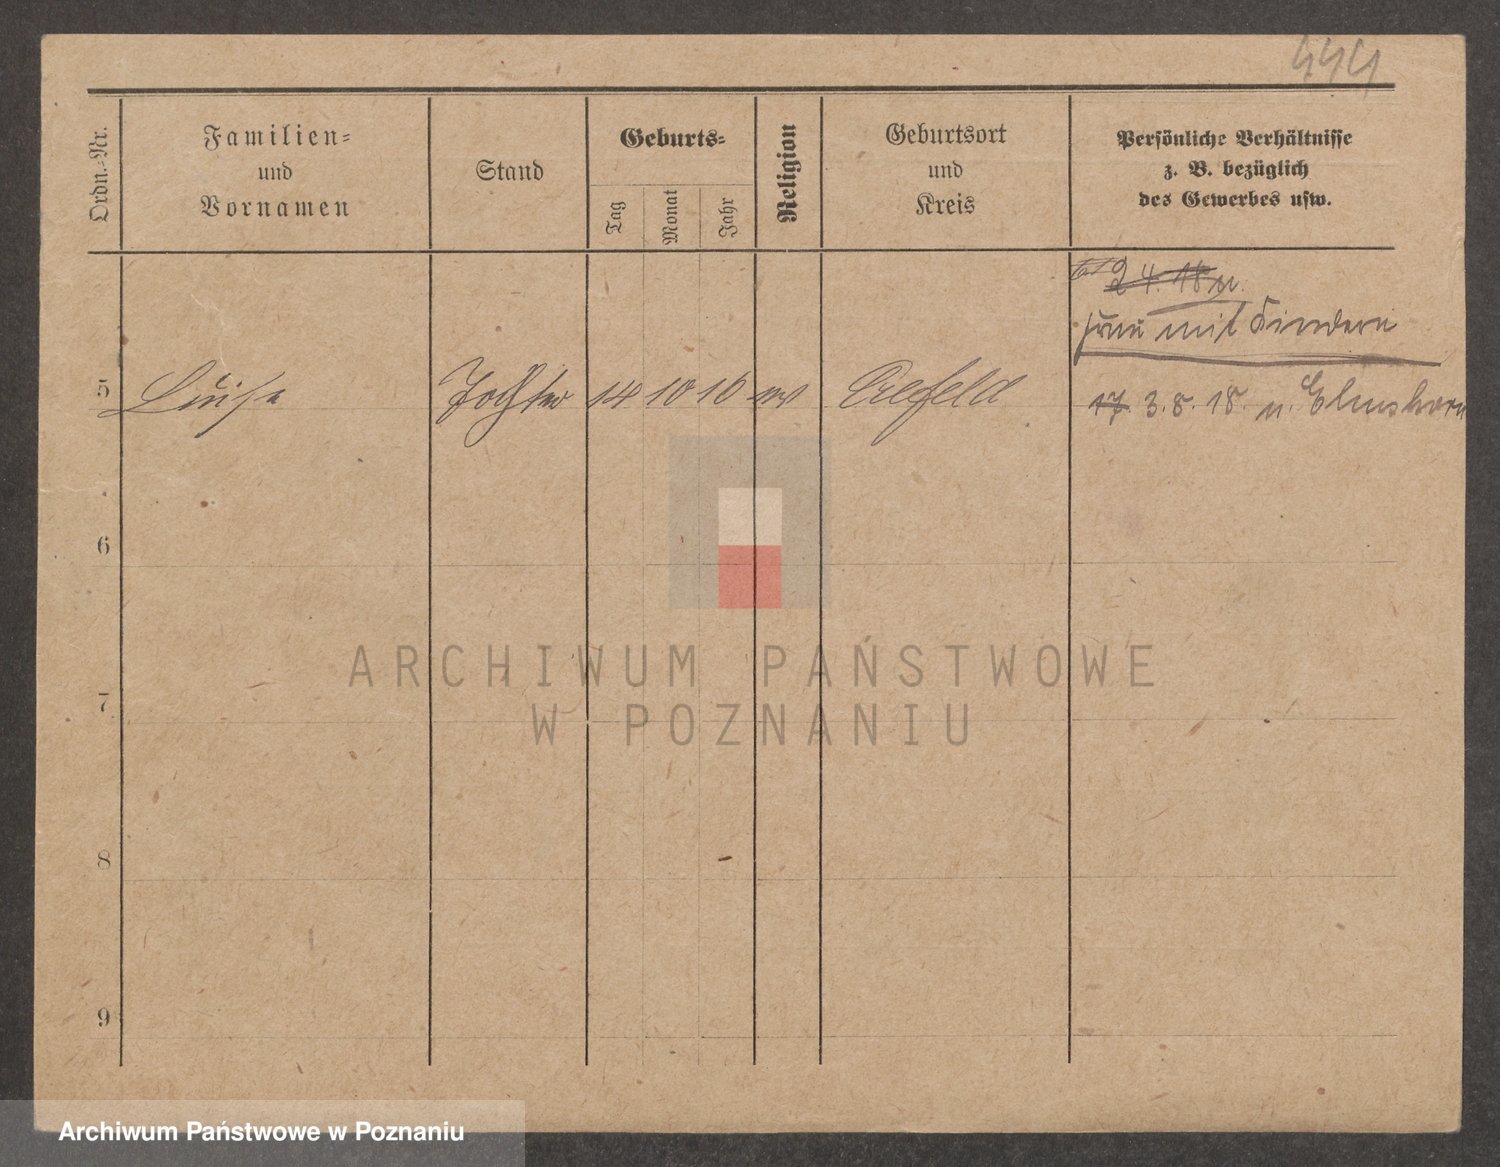 444
Ordn.-Nr.
Familien-
und
Vornamen
Stand
Geburts-
Tag
Monat
Jahr
Religion
Geburtsort
und
Kreis
Persönliche Verhältnisse
z. B. bezüglich
des Gewerbes usw.
2 4. 18 n.
Frau mit Kindern
5 Luise Tochter 14 10 16 ev Crefeld 17. 3.8.18. n. Elmshorn
6
7
8
9
ARCHIWUM PAŃSTWOWE
W POZNANIU
Archiwum Państwowe w Poznaniu